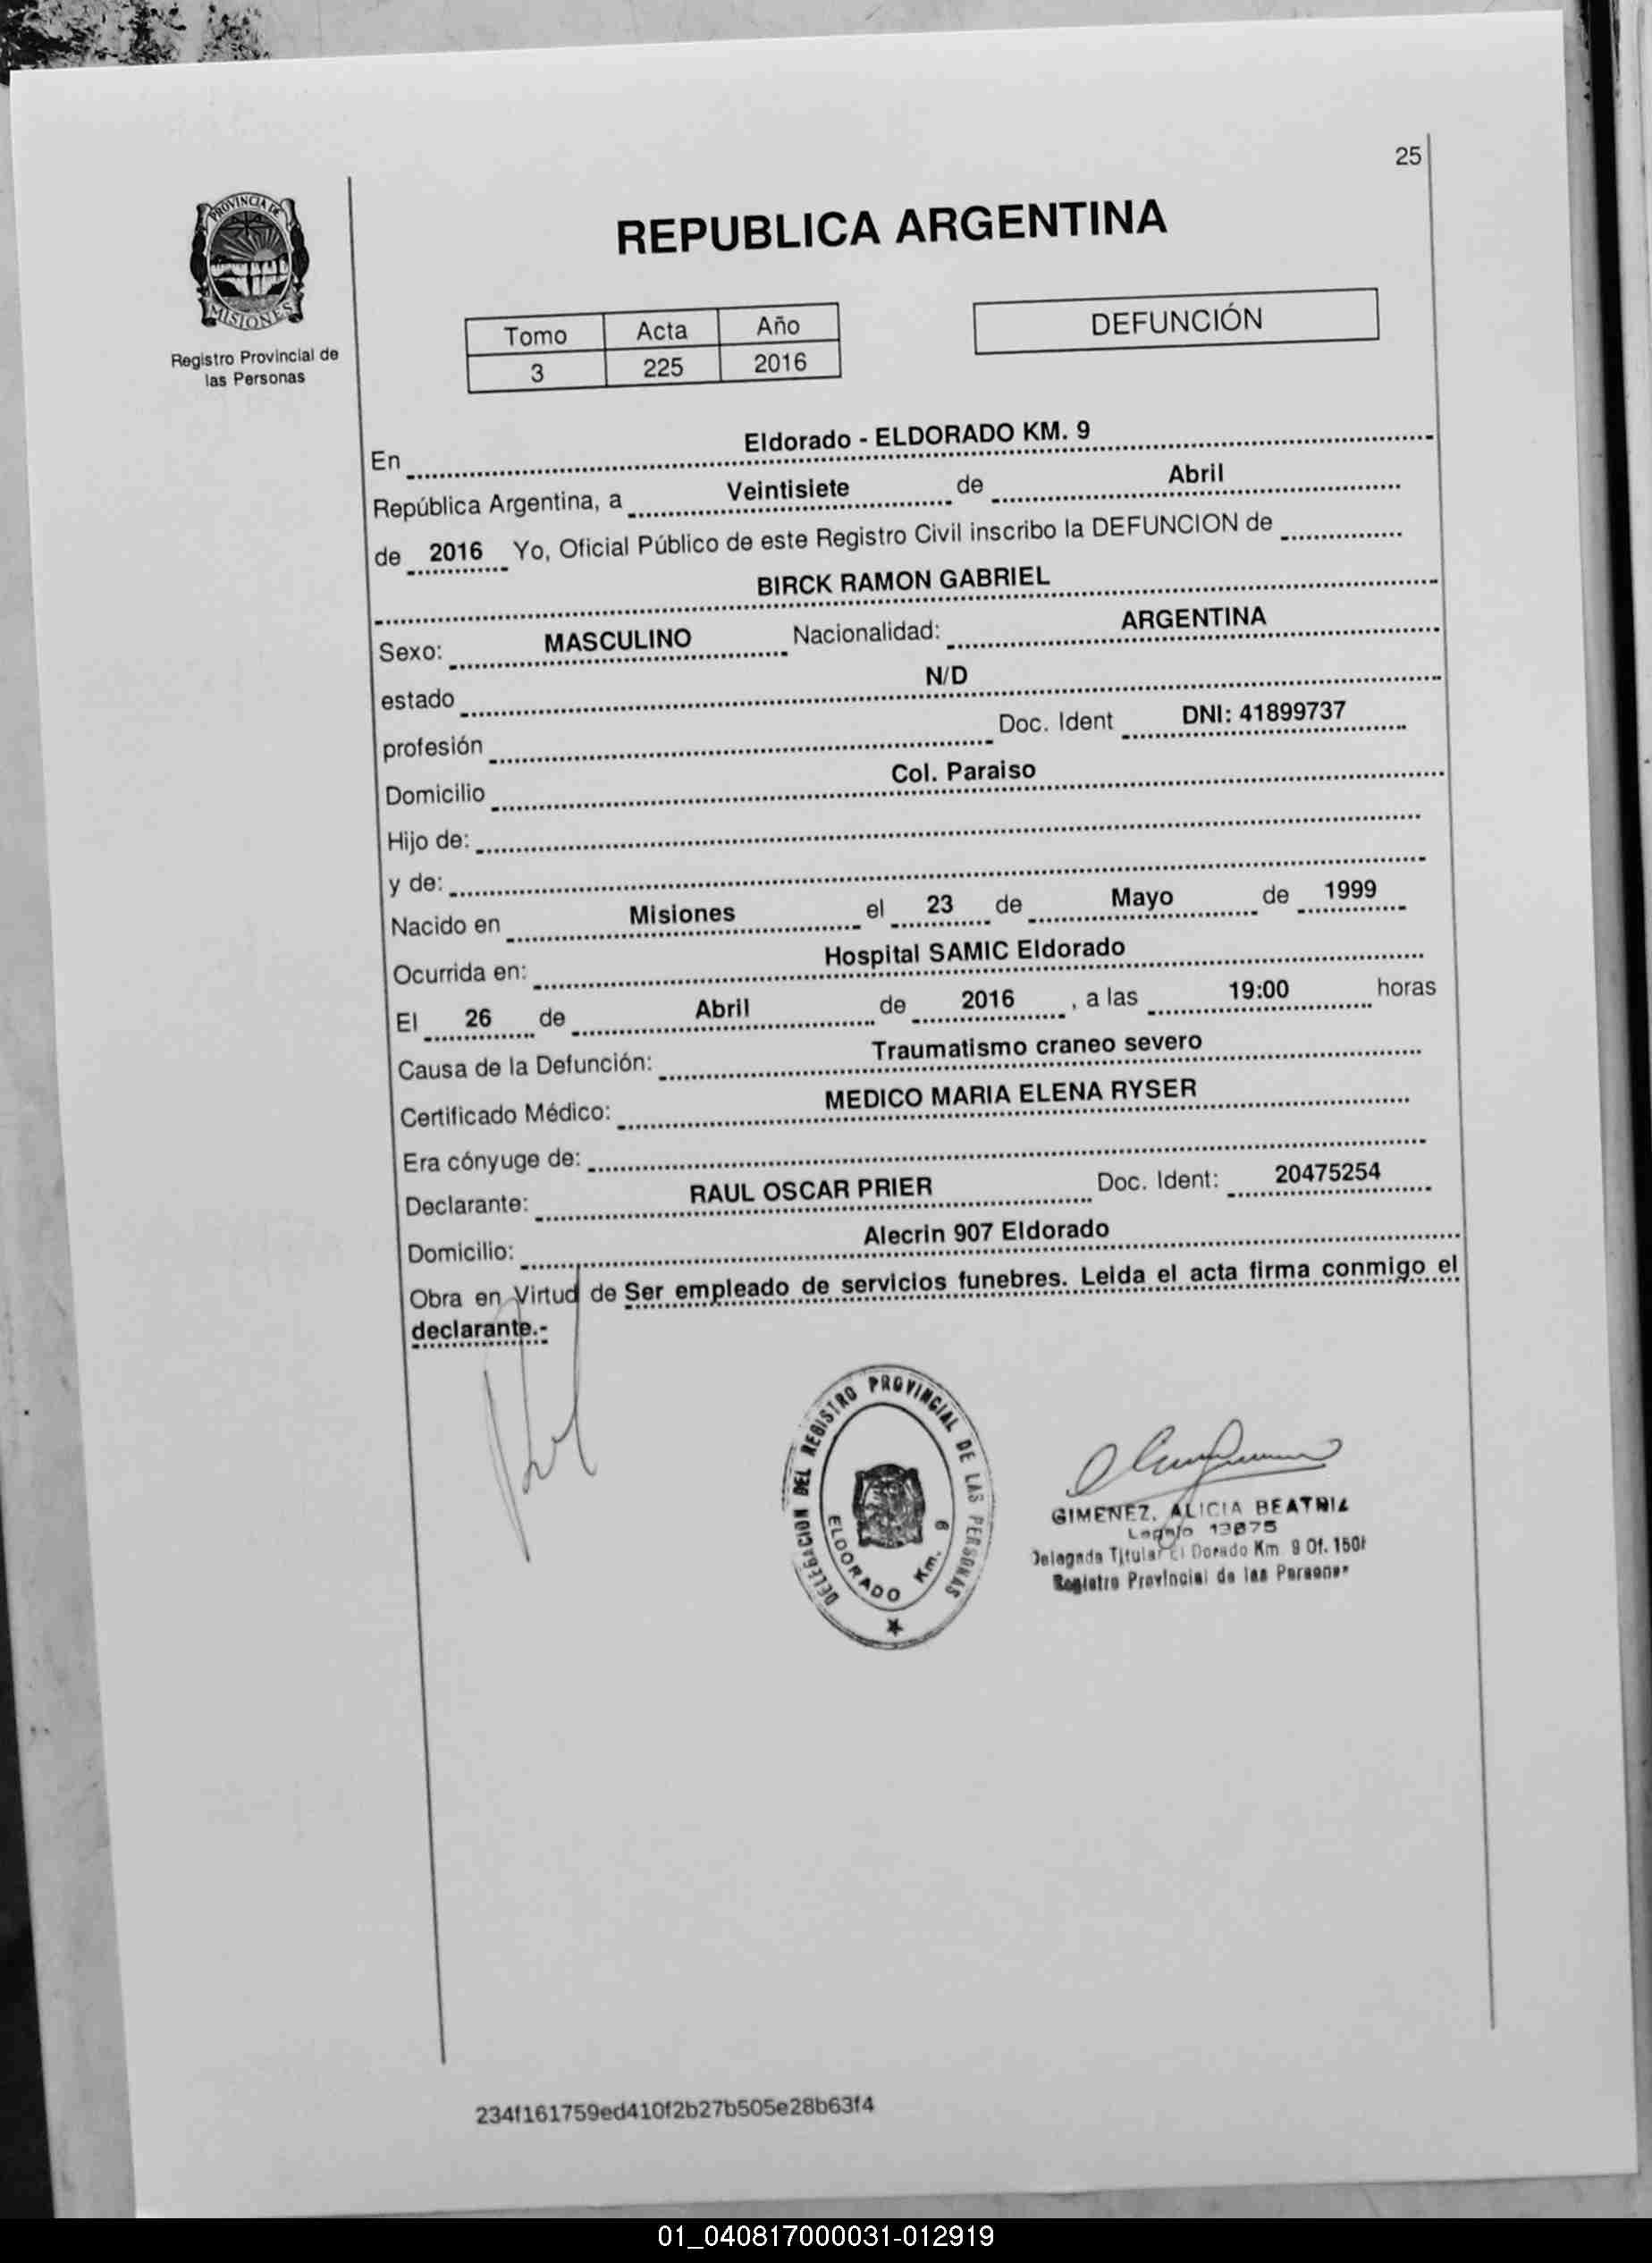 25
PROVINCIA DE
MISIONES
Registro Provincial de
las Personas
REPUBLICA ARGENTINA
Tomo Acta Año
3 225 2016
DEFUNCIÓN
En Eldorado - ELDORADO KM. 9
República Argentina, a Veintisiete de Abril
de 2016 Yo, Oficial Público de este Registro Civil inscribo la DEFUNCION de
BIRCK RAMON GABRIEL
Sexo: MASCULINO Nacionalidad: ARGENTINA
estado N/D
profesión Doc. Ident DNI: 41899737
Domicilio Col. Paraiso
Hijo de:
y de:
Nacido en Misiones el 23 de Mayo de 1999
Ocurrida en: Hospital SAMIC Eldorado
El 26 de Abril de 2016 , a las 19:00 horas
Causa de la Defunción: Traumatismo craneo severo
Certificado Médico: MEDICO MARIA ELENA RYSER
Era cónyuge de:
Declarante: RAUL OSCAR PRIER Doc. Ident: 20475254
Domicilio: Alecrin 907 Eldorado
Obra en Virtud de Ser empleado de servicios funebres. Leida el acta firma conmigo el
declarante.-
DELEGACION DEL REGISTRO PROVINCIAL DE LAS PERSONAS
ELDORADO Km. 9
GIMENEZ, ALICIA BEATRIZ
Legajo 13875
Delegada Titular El Dorado Km. 9 Of.
Registro Provincial de las Personas
234f161759ed410f2b27b505e28b63f4
01_040817000031-012919